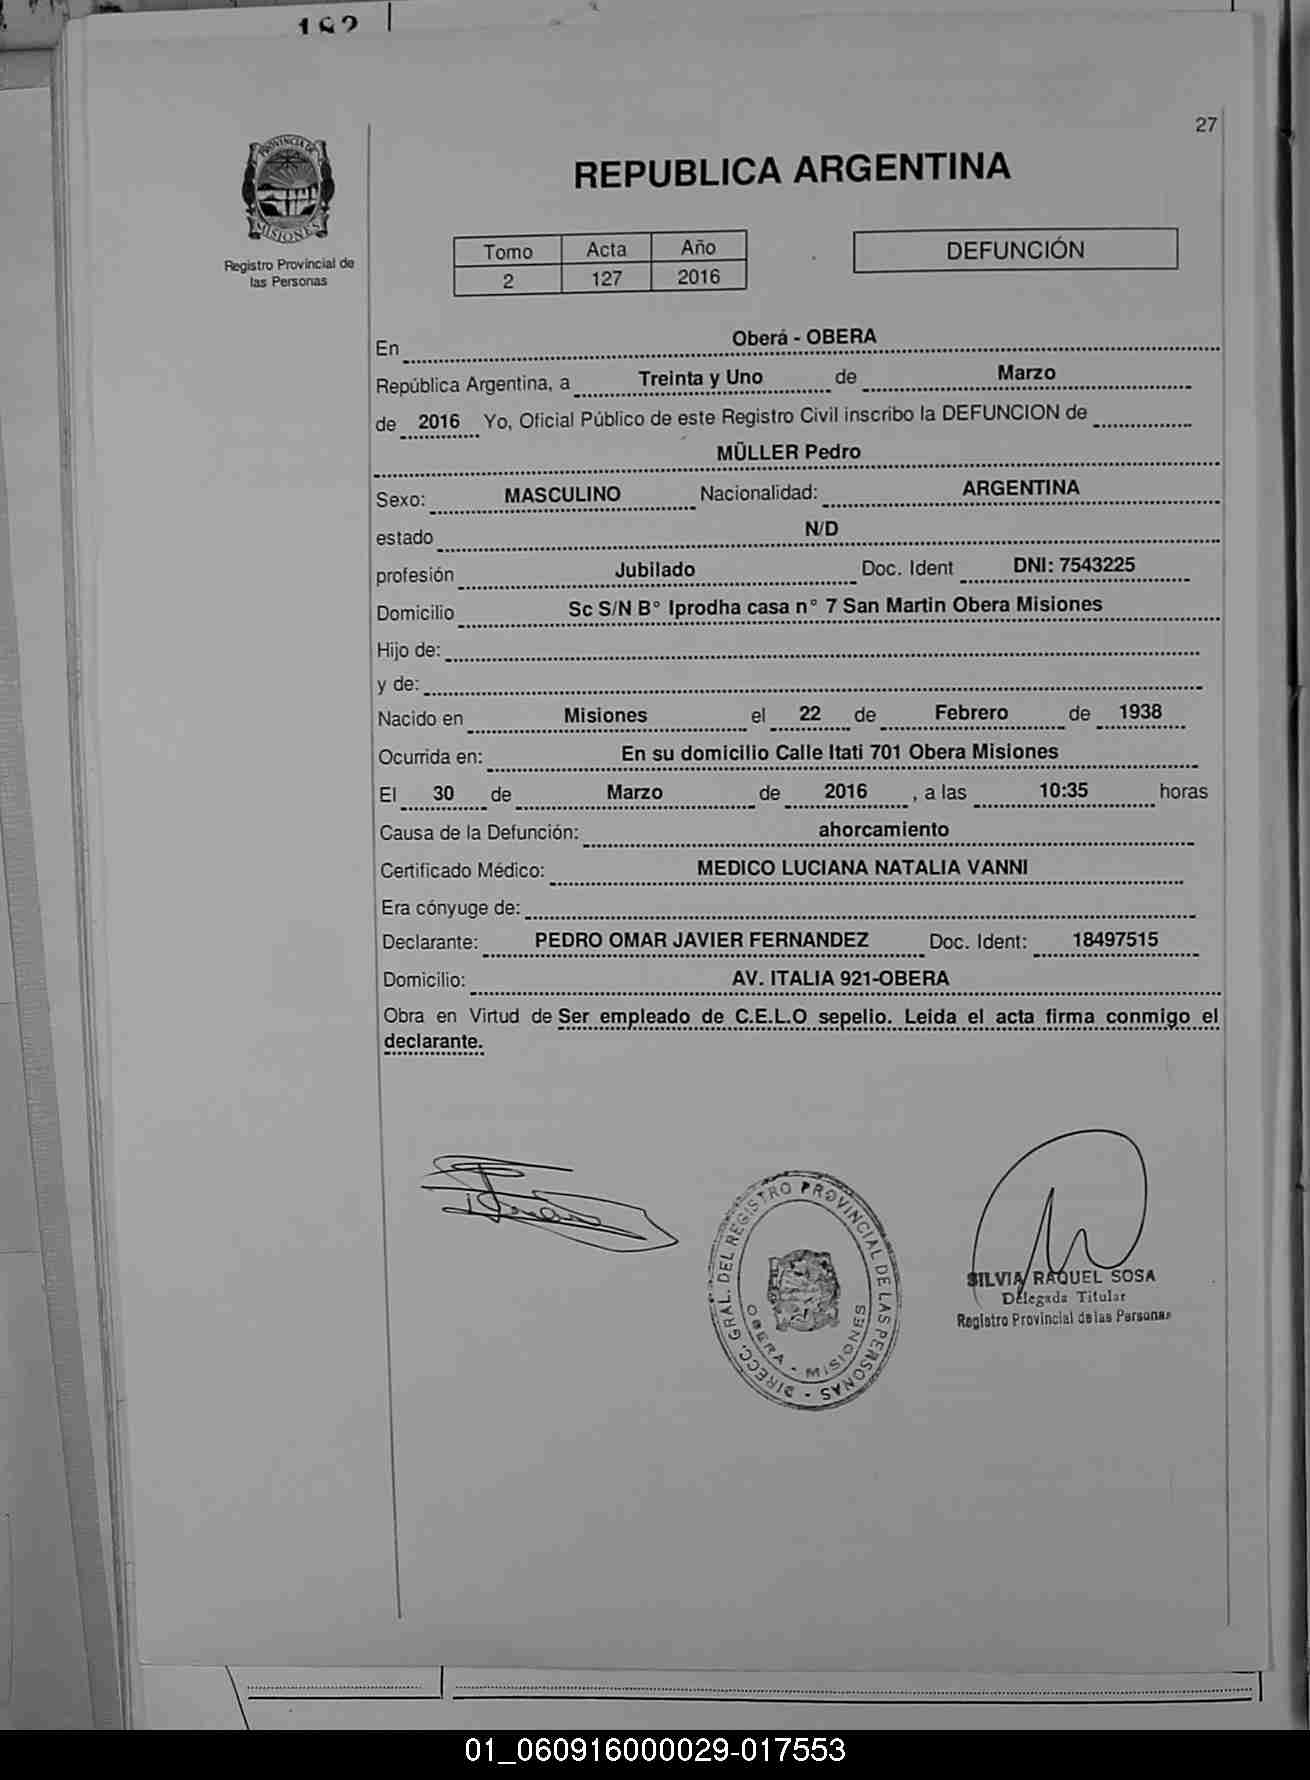 182
27
PROVINCIA DE
MISIONES
Registro Provincial de
las Personas
REPUBLICA ARGENTINA
Tomo Acta Año
2 127 2016
DEFUNCIÓN
En Oberá - OBERA
República Argentina, a Treinta y Uno de Marzo
de 2016 Yo, Oficial Público de este Registro Civil inscribo la DEFUNCION de
MÜLLER Pedro
Sexo: MASCULINO Nacionalidad: ARGENTINA
estado N/D
profesión Jubilado Doc. Ident DNI: 7543225
Domicilio Sc S/N B° Iprodha casa n° 7 San Martin Obera Misiones
Hijo de:
y de:
Nacido en Misiones el 22 de Febrero de 1938
Ocurrida en: En su domicilio Calle Itati 701 Obera Misiones
El 30 de Marzo de 2016 , a las 10:35 horas
Causa de la Defunción: ahorcamiento
Certificado Médico: MEDICO LUCIANA NATALIA VANNI
Era cónyuge de:
Declarante: PEDRO OMAR JAVIER FERNANDEZ Doc. Ident: 18497515
Domicilio: AV. ITALIA 921-OBERA
Obra en Virtud de Ser empleado de C.E.L.O sepelio. Leida el acta firma conmigo el
declarante.
DIRECC. GRAL. DEL REGISTRO PROVINCIAL DE LAS PERSONAS -
OBERA - MISIONES
SILVIA RAQUEL SOSA
Delegada Titular
Registro Provincial de las Personas
01_060916000029-017553